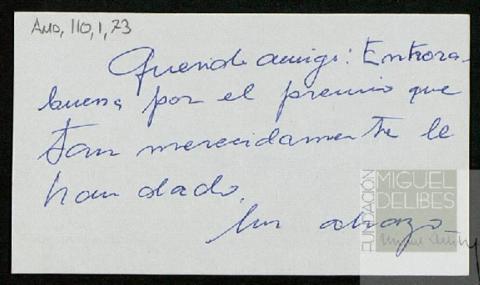 AMD, 110, 1, 73
Querido amigo: Enhora-
buena por el premio que
tan merecidamente le
han dado.
Un abrazo
FUNDACIÓN
MIGUEL
DELIBES